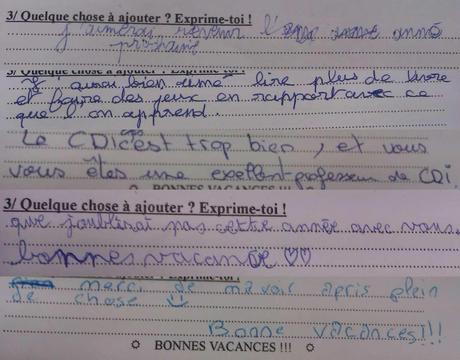 3/ Quelque chose à ajouter ? Exprime-toi !
j'aimerai revenir l' anné
prochaine
3/ Quelque chose à ajouter ? Exprime-toi !
aussi bien aimé lire plus de livre
et faire des jeux en rapport avec ce
que l'on apprend.
Le CDI c'est trop bien, et vous
vous êtes une exellent professeur de CDI.
BONNES VACANCES !!!
3/ Quelque chose à ajouter ? Exprime-toi !
que joublirai pas cette année avec vous.
bonnes vacance ♡♡
merci de mavoir apris plein
de chose
Bonne vacances!!!
☼ BONNES VACANCES !!! ☼